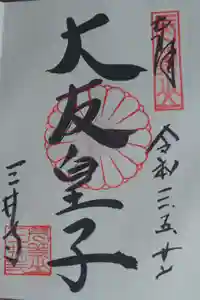 奉拝
令和三、五、廿七
大友皇子
三井寺